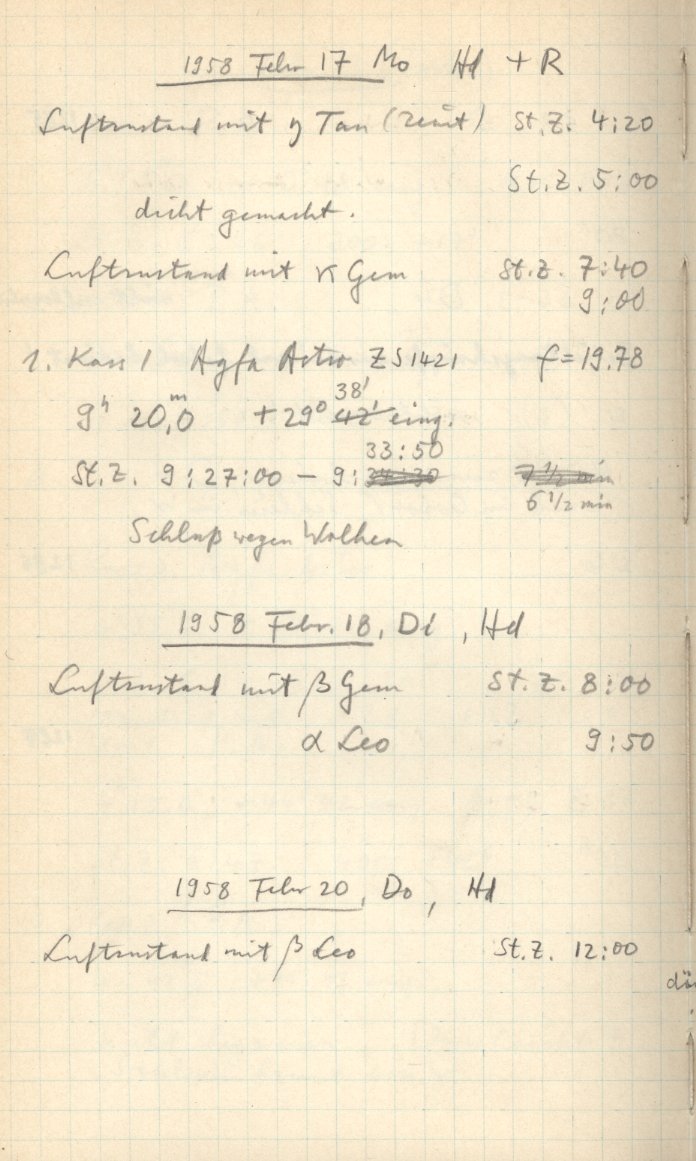 1958 Febr 17 Mo Hd + R
Luftzustand mit η Tau (Zenit) St.Z. 4:20
St.Z. 5:00
dicht gemacht.
Luftzustand mit κ Gem St.Z. 7:40
9:00
1. Kass 1 Agfa Astro ZS1421 f=19.78
38'
9ʰ 20,ᵐ0 +29⁰ 42' eing.
33:50
St.Z. 9:27:00 – 9:34:30 7 1/2 min
6 1/2 min
Schluß wegen Wolken
1958 Febr. 18, Di, Hd
Luftzustand mit β Gem St.Z. 8:00
α Leo 9:50
1958 Febr 20, Do, Hd
Luftzustand mit β Leo St.Z. 12:00